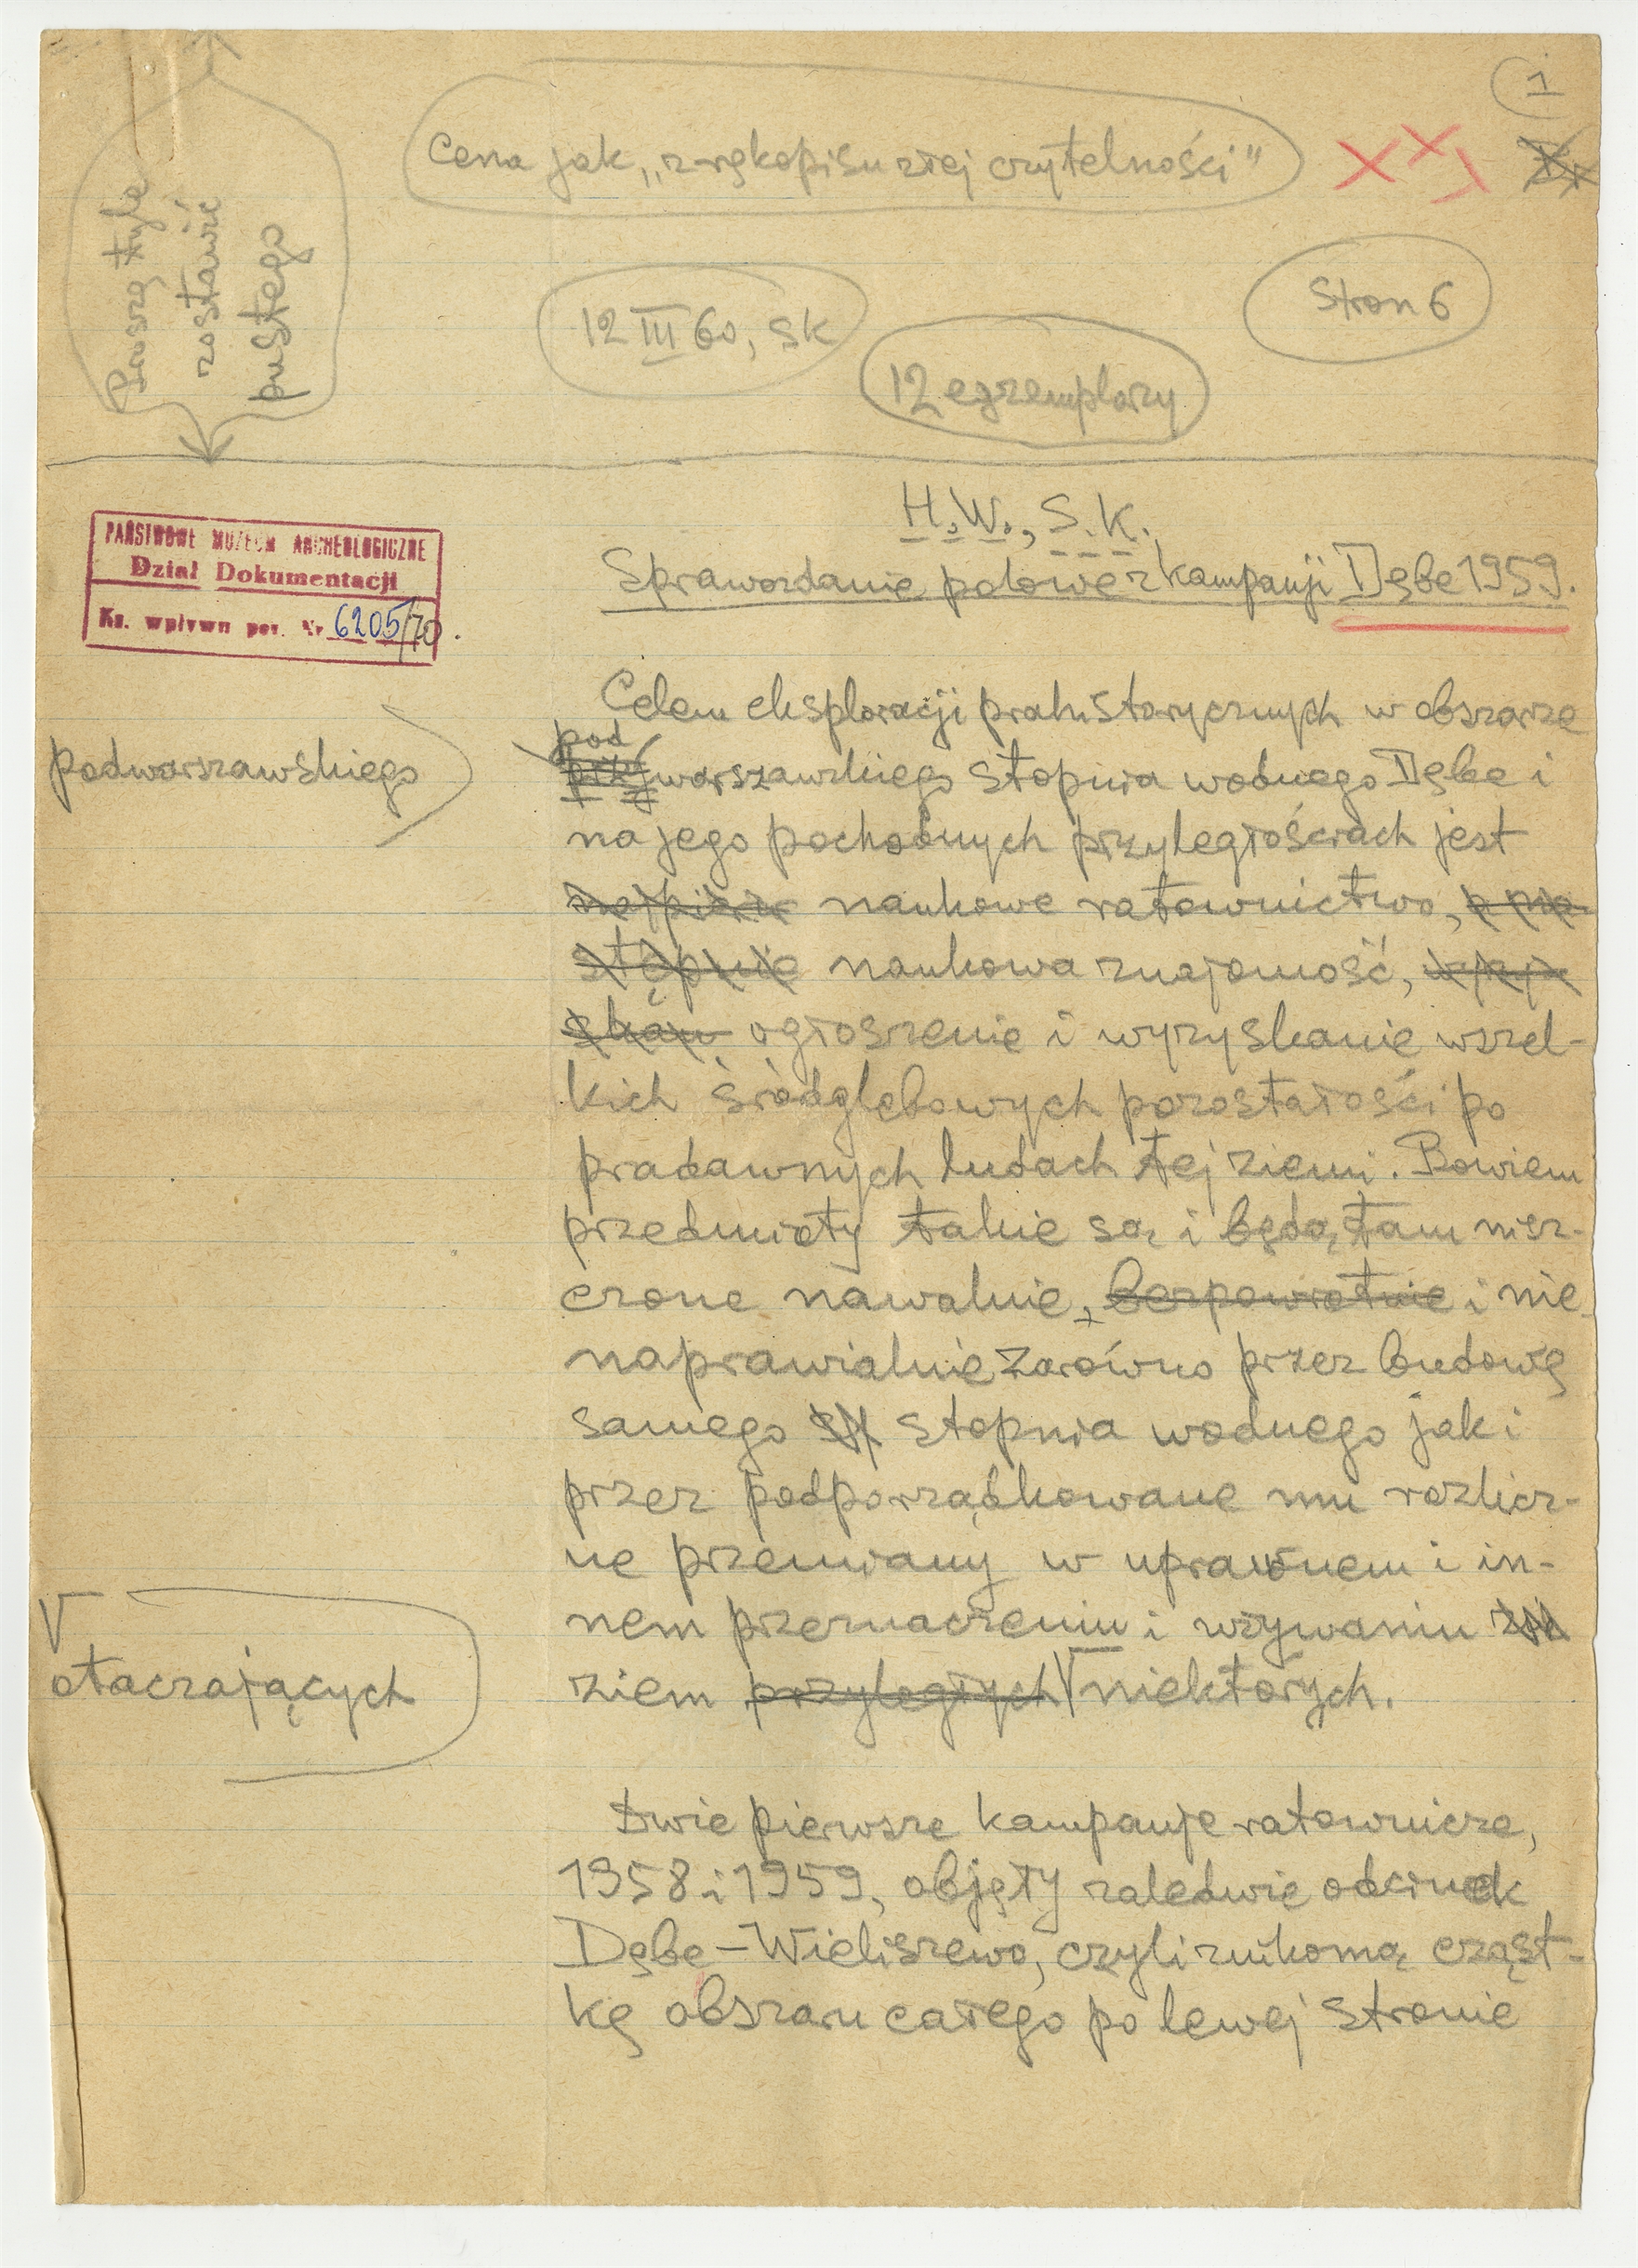 1
Cena jak „z rękopisu złej czytelności"
Proszę tyle
zostawić
pustego
12 III 60, SK
Stron 6
12 egzemplarzy
H.W., S.K.
PAŃSTWOWE MUZEUM ARCHEOLOGICZNE
Dział Dokumentacji
Ks. wpływu poz. Nr 6205/70.
Sprawozdanie polowe z kampanji Dębe 1959.
Celem eksploracji prahistorycznych w obszarze
pod
podwarszawskiego
warszawskiego stopnia wodnego Dębe i
na jego pochodnych przyległościach jest
najpierw naukowe ratownictwo, a na-
stępnie naukowa znajomość,
ogłoszenie i wyzyskanie wszel-
kich śródglebowych pozostałości po
pradawnych ludach tej ziemi. Bowiem
przedmioty takie są i będą tam nisz-
czone nawalnie, bezpowrotnie i nie
naprawialnie zarówno przez budowę
samego stopnia wodnego jak i
przez podporządkowane mu rozlicz-
ne przemiany w uprawnem i in-
nem przeznaczeniu i używaniu
otaczających
ziem przyległych niektórych.
Dwie pierwsze kampanje ratownicze,
1958 i 1959, objęły zaledwie odcinek
Dębe-Wieliszewo, czyli znikomą cząst-
kę obszaru całego po lewej stronie